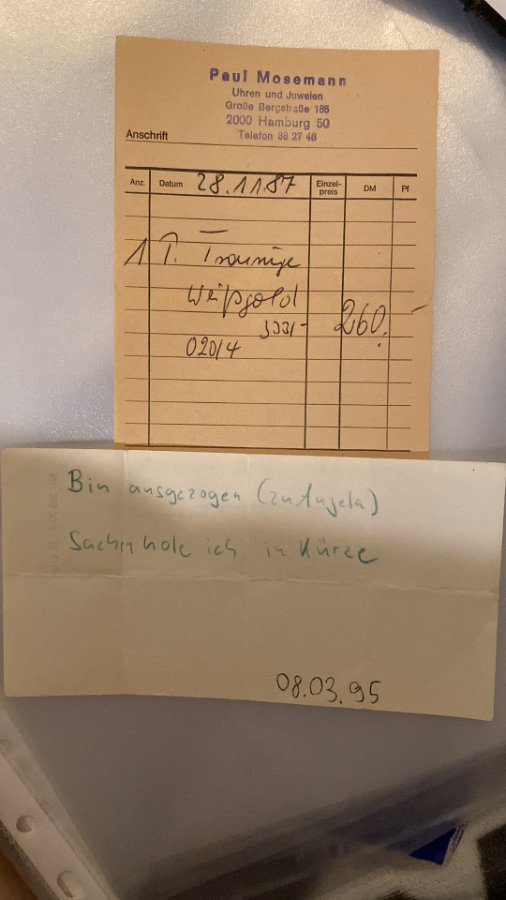 Paul Mosemann
Uhren und Juwelen
Große Bergstraße 185
2000 Hamburg 50
Telefon 38 27 48
Anschrift
Anz. Datum 28.11.87 Einzel-preis DM Pf
1 P. Trauringe
Weißgold
333/-
020/4
260.-
Bin ausgezogen (zu Angela)
Sachen hole ich in Kürze
08.03.95